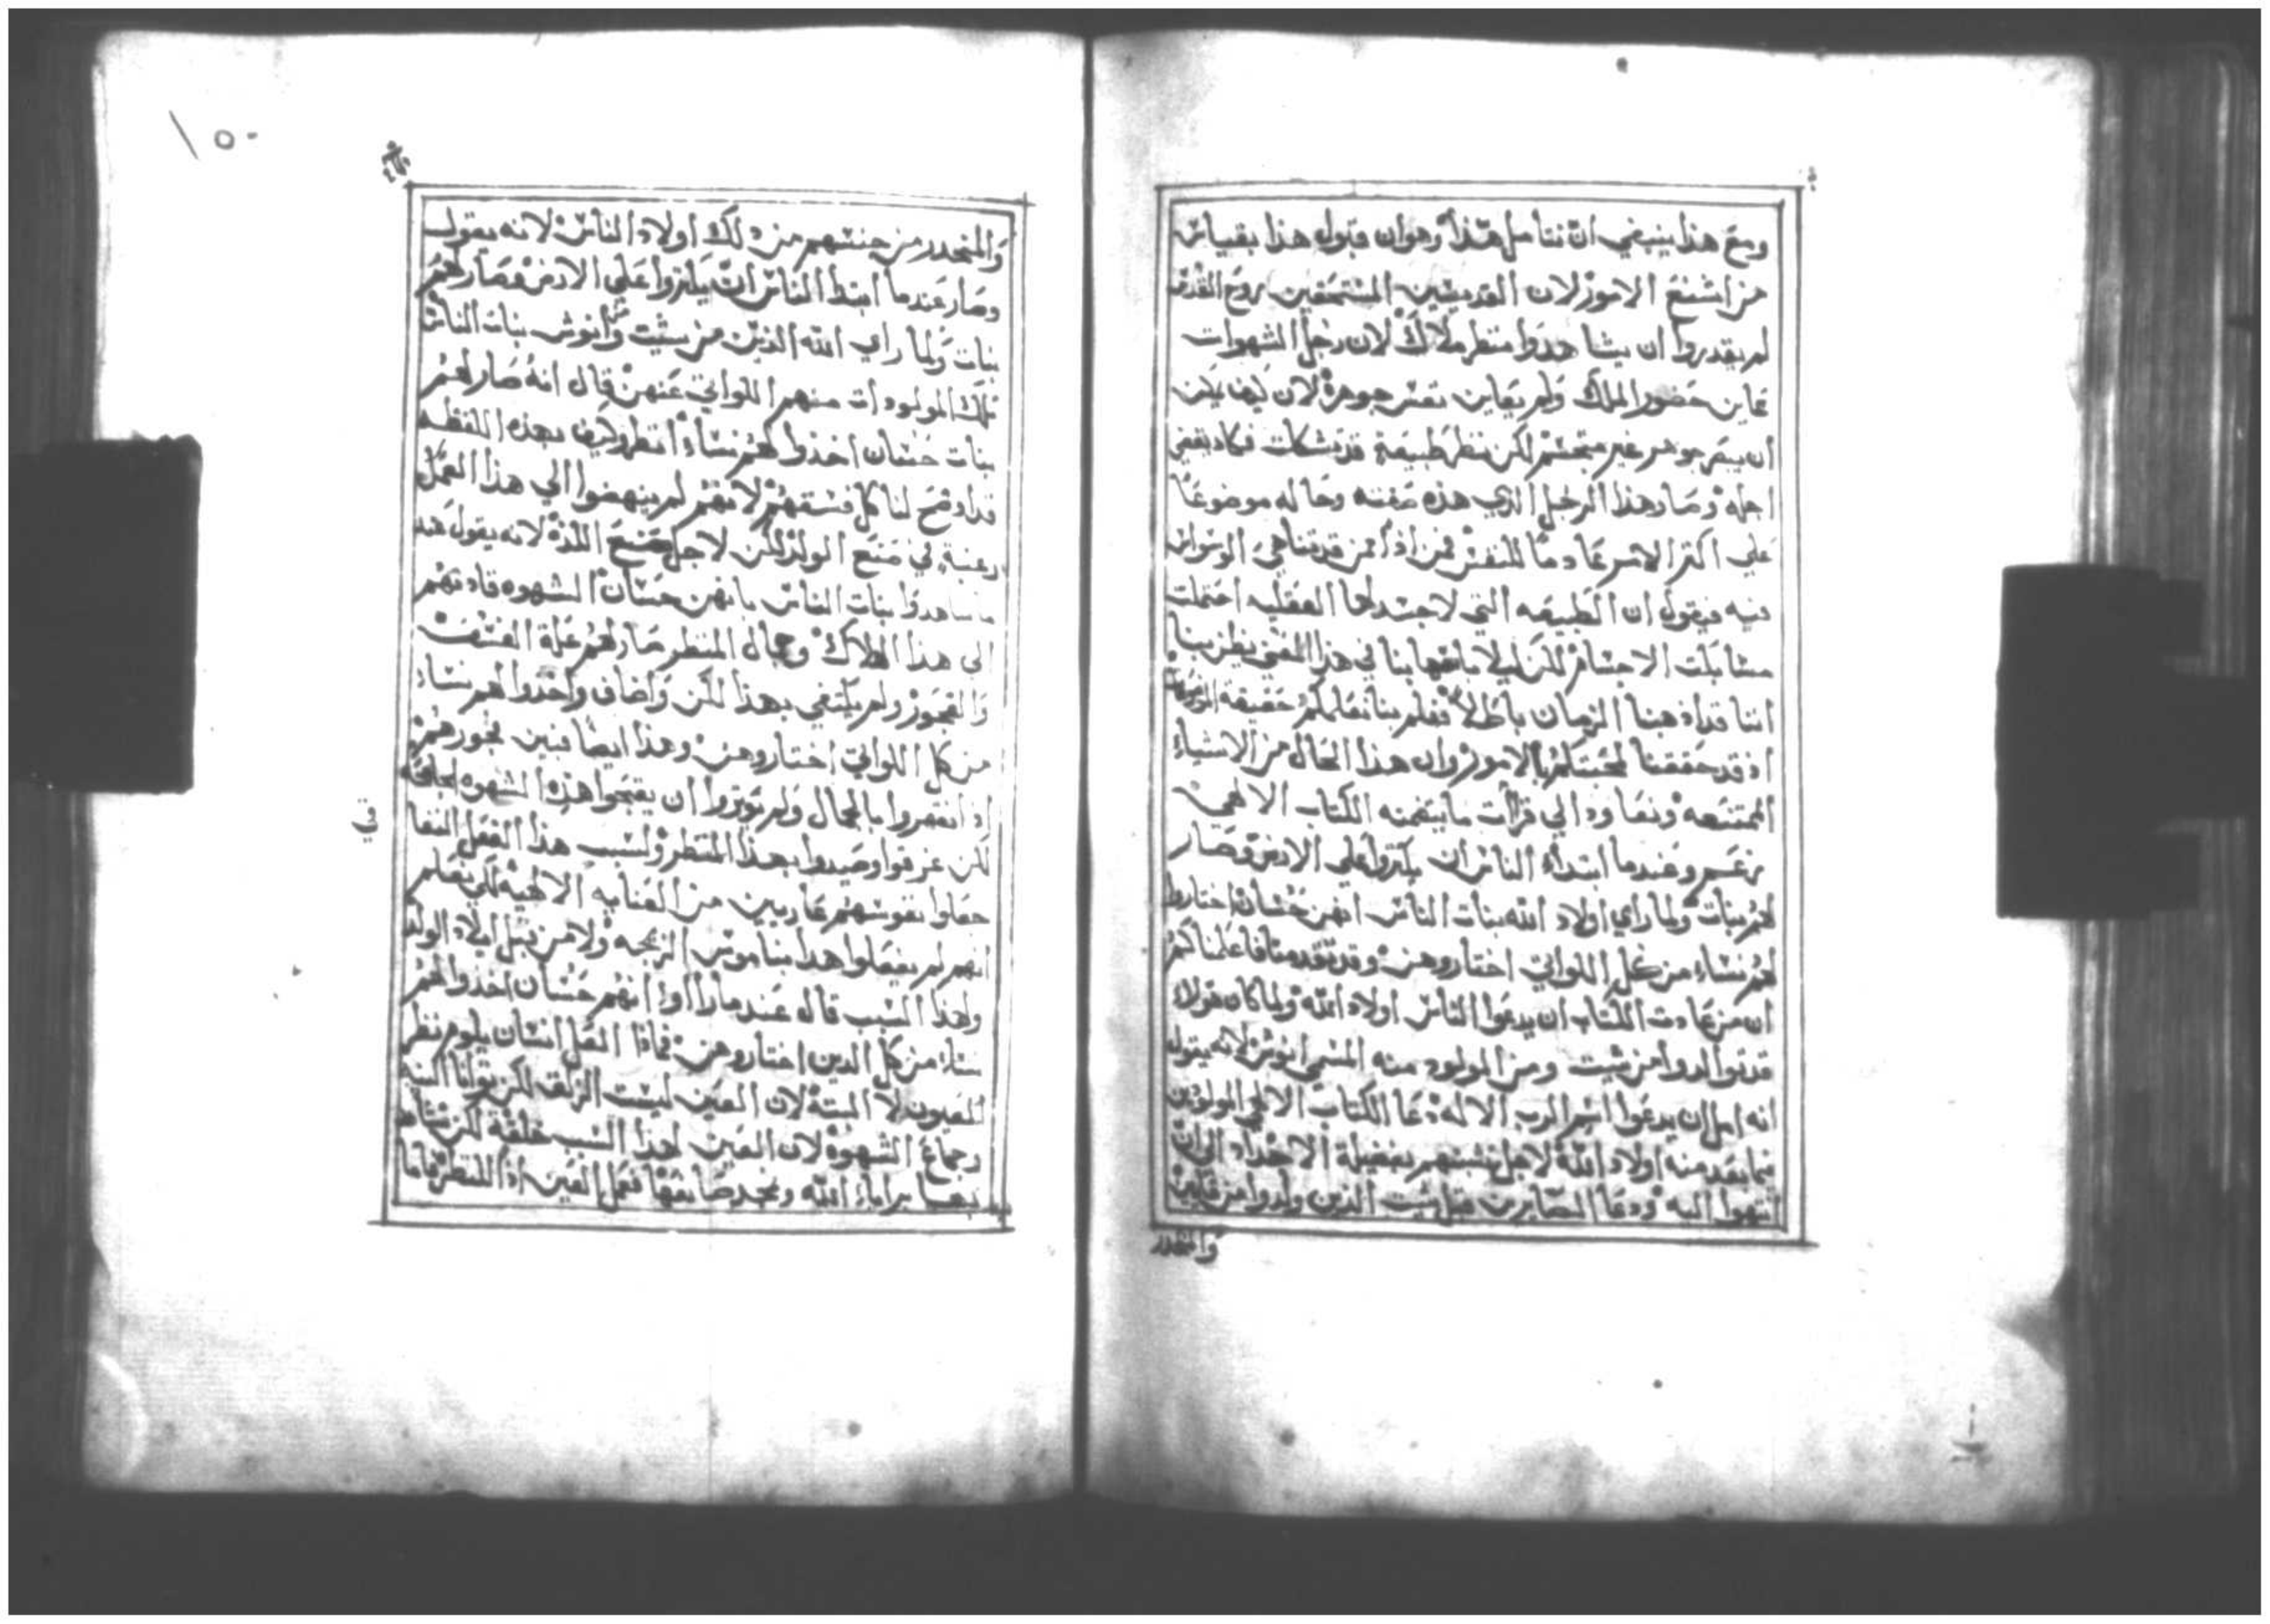 ومع هذا ينبغي ان نتأمل هذا وهو ان قبول هذا بقياس
من اشنع الامور لان القديسين المستحقين روح القدس
لم يقدروا ان يشاهدوا منظر ملاك لان رجل الشهوات
عاين حضور الملك ولم يعاين نفس جوهرة لان كيف يمكن
ان يبصر جوهر غير متجسم لكن نظر طبيعة قد تشكلت فكاد يقضي
اجله وصار هذا الرجل الذي هذه صفته وحاله موضوعا
علي اكثر الامر عادما للنفس فمن اذا ممن قد تناهي الوسواس
فيه فيقول ان الطبيعه التي لا جسد لها العقليه احتملت
مشابكت الاجسام لكن ليلا باتهابنا في هذا المعني يظن بنا
اننا قد اذهبنا الزمان باطلا فهلم بنا نعلمكم حقيقة
اذ قد حققنا لمحبتكم بالامور وان هذا الحال من الاشياء
الممتنعه ونعاود الي قرأت ما يتضمنه الكتاب الالهي
زعم وعندما ابتداء الناس ان يكثروا علي الارض وصار
لهم بنات ولما راي اولاد الله بنات الناس انهن حسان اختاروا
لهم نساء من كل اللواتي اختاروهن وقد تقدمنا فاعلمناكم
ان من عادت الكتاب ان يدعوا الناس اولاد الله ولما كان هولاء
قد توالدوا من شيت ومن المولود منه المسمي انوش لانه يقول
انه امل ان يدعوا اسم الرب الاله دعا الكتاب الالهي المولودين
فيما بعد منه اولاد الله لاجل تشبههم بفضيلة الاجداد الي ان
انتهوا اليه ودعا الصايرين قبل شيت الذين ولدوا من قايين
والمنحدر
١٥٠
والمنحدر من جنسهم من ذلك اولاد الناس لانه يقول
وصار عندما ابتدا الناس ان يكثروا علي الارض وصار لهم
بنات ولما راي الله الذين من شيت وانوش بنات الناس
تلك المولودات منهم اللواتي عنهن قال انه صار لهم
بنات حسان اخذوا لهم نساء انظر كيف بهذه اللفظه
قد اوضح لنا كل فسقهم لانهم لم ينهضوا الي هذا العمل
رغبة في صنع الولد لكن لاجل صنع اللذة لانه يقول عند
ما شاهدوا بنات الناس بانهن حسان الشهوه قادتهم
الي هذا الهلاك وجمال المنظر صار لهم علة الفسق
والفجور ولم يكتفي بهذا لكن واضاف واخذوا لهم نساء
من كل اللواتي اختاروهن وهذا ايضا فبين فجورهم
اذ انقهروا بالجمال ولم يوثروا ان يقمحوا هذه الشهوه
لكن غرقوا وصيدوا بهذا المنظر ولسبب هذا الفعل النفا
جعلوا نفوسهم عاريين من العنايه الالهيه لكي نعلم
انهم لم يفعلوا هذا بناموس الزيجه ولا من قبل ايلاد الولد
ولهذا السبب قال عند ما رااوا انهم حسان اخذوا لهم
نساء من كل الدين اختاروهن فماذا العل انسان يلوم نظر
العيون لا البتة لان العين ليست الزلق لكن
وجماع الشهوة لان العين لهذا السبب خلقة لكن
بها برايا الله ونمجد صانعها فعمل العين اذا للنظر فاما